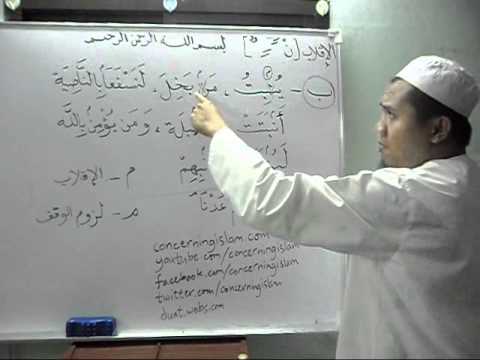 [الإقلاب] بسم الله الرحمن الرحيم
ب - يُنۢبِتُ ، مَنۢ بَخِلَ ، لَنَسْفَعَۢا بِالنَّاصِيَةِ
أَنۢبَتَتْ ، وَمَن يُؤْمِنۢ بِاللَّهِ
م - الإقلاب
مـ - لزوم الوقف
concerningislam.com
youtube.com/concerningislam
facebook.com/concerningislam
twitter.com/concerningislam
duat.webs.com